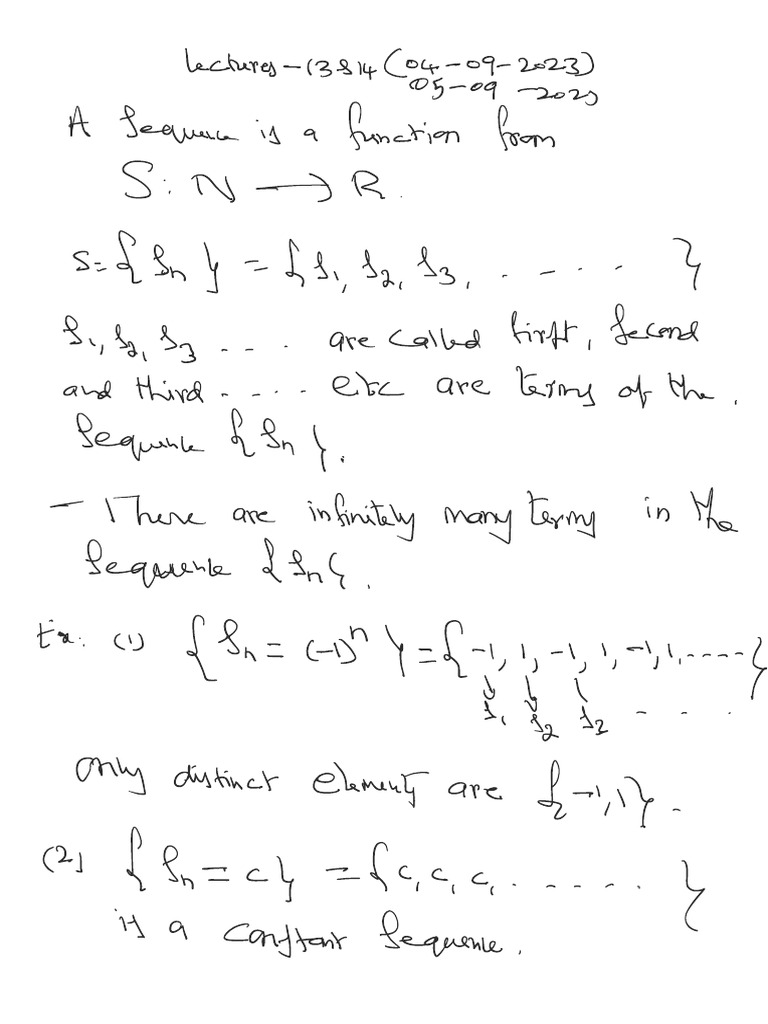 Lectures - 13 & 14 (04-09-2023)
05-09-2023
A Sequence is a function from
S: N → R.
S = {Sn} = {S1, S2, S3, . - . . . }
S1, S2, S3 - - . . are called first, Second
and third - . - . . etc are terms of the.
Sequence {Sn}.
- There are infinitely many terms in the
Sequence {Sn}.
Ex: (1) {Sn = (-1)^n} = {-1, 1, -1, 1, -1, 1, - - - - -}
S1 S2 S2 - - .
only distinct elements are {-1, 1}.
(2) {Sn = c} = {c, c, c, . - - . . . }
is a constant Sequence.